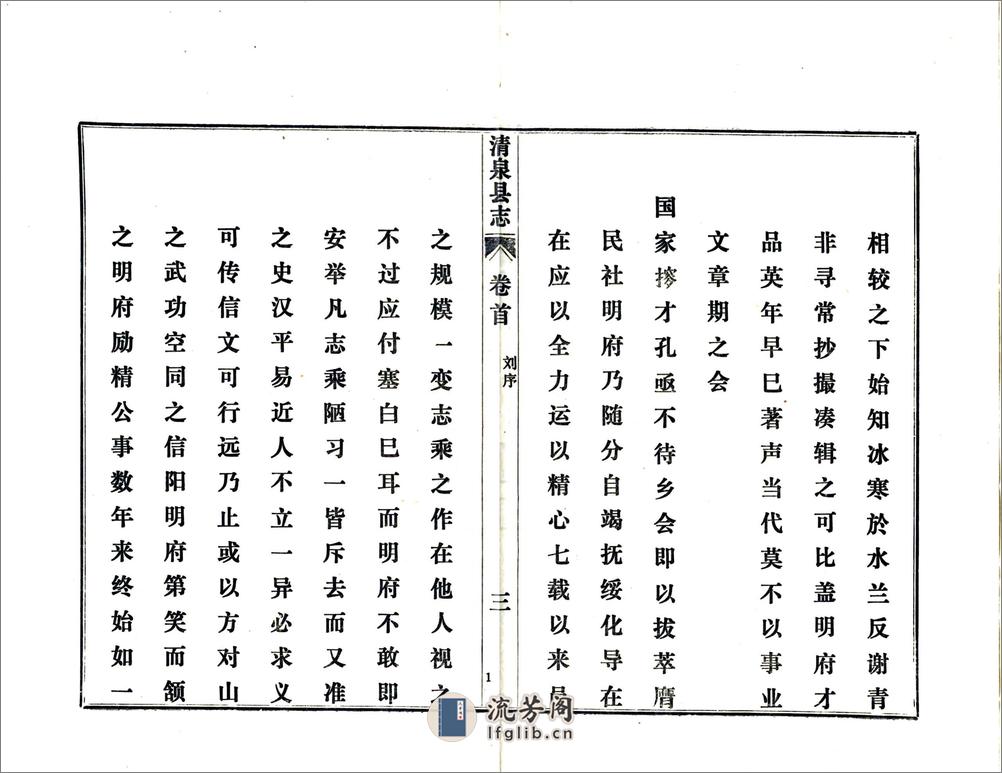 相较之下始知冰寒於水兰反谢青
非寻常抄撮凑辑之可比盖明府才
品英年早巳著声当代莫不以事业
文章期之会
国家撏才孔亟不待乡会即以拔萃膺
民社明府乃随分自竭抚绥化导在
在应以全力运以精心七载以来
清泉县志
卷首
刘序
三
1
之规模一变志乘之作在他人视之
不过应付塞白巳耳而明府不敢即
安举凡志乘陋习一皆斥去而又准
之史汉平易近人不立一异必求义
可传信文可行远乃止或以方对山
之武功空同之信阳明府第笑而颔
之明府励精公事数年来终始如一
流芳阁
lfglib.cn